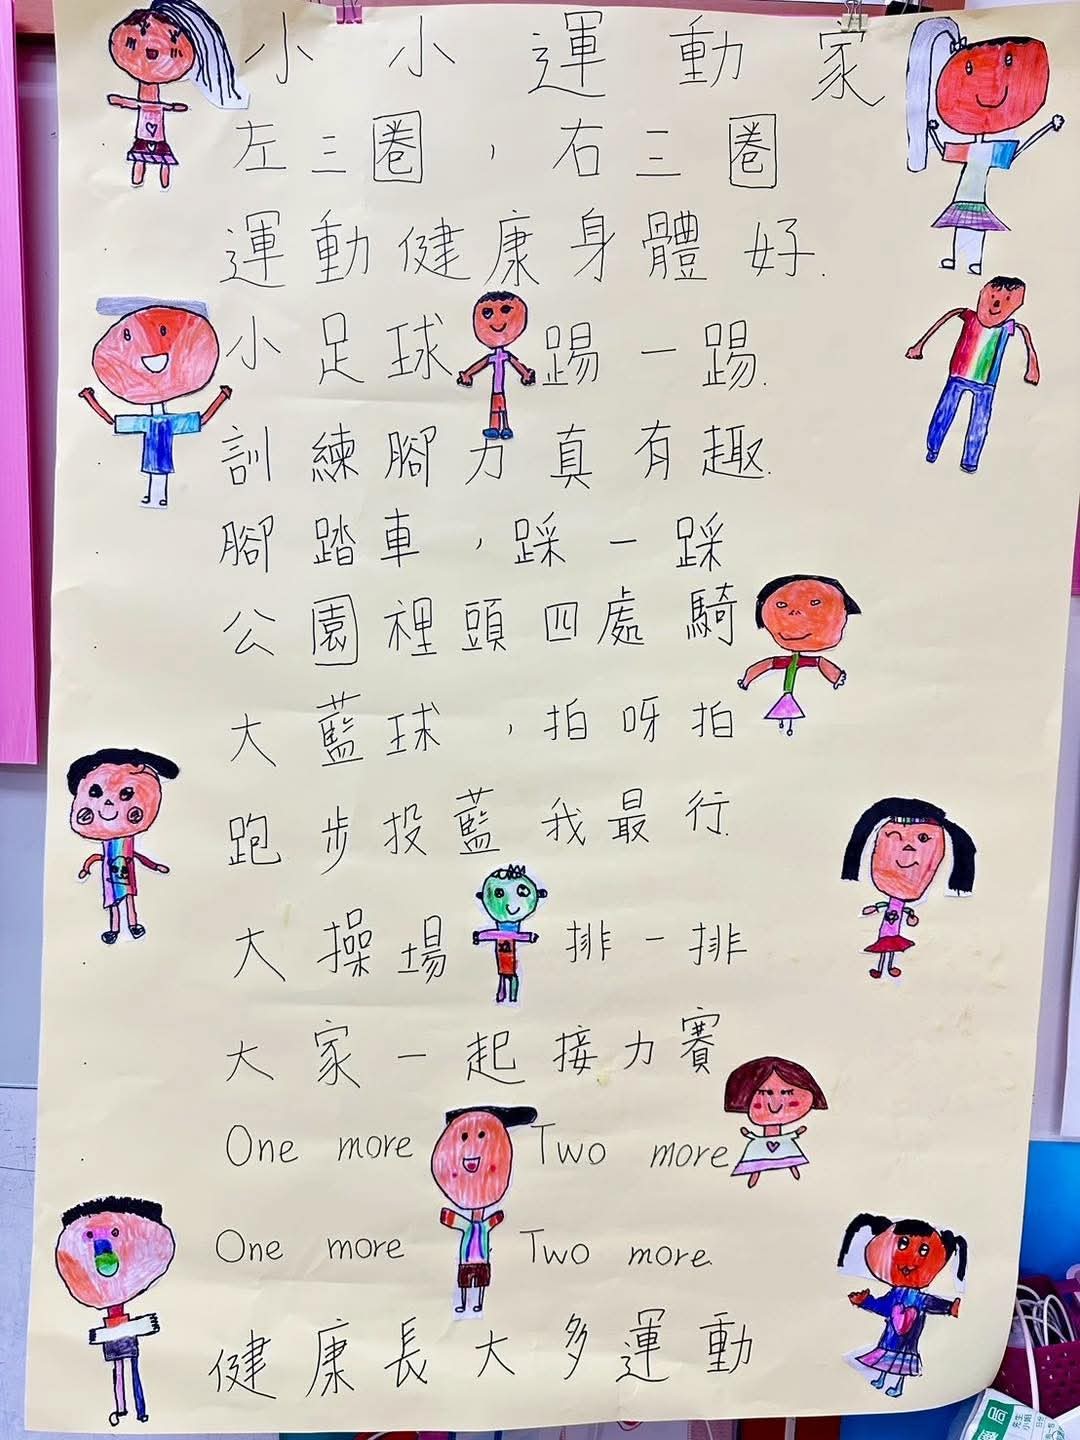 小小運動家
左三圈，右三圈
運動健康身體好.
小足球踢一踢.
訓練腳力真有趣.
腳踏車，踩一踩
公園裡頭四處騎
大藍球，拍呀拍
跑步投藍我最行.
大操場排一排
大家一起接力賽
One more Two more
One more Two more.
健康長大多運動